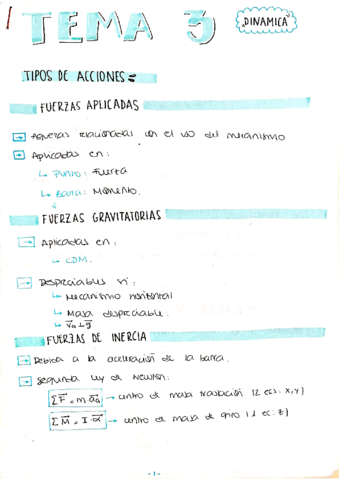 TEMA 3
DINAMICA
TIPOS DE ACCIONES =
FUERZAS APLICADAS
→ Aquellas relacionadas con el uso del mecanismo
→ Aplicadas en:
↳ Punto: Fuerza
↳ Barra: Momento.
FUERZAS GRAVITATORIAS
→ Aplicadas en:
↳ CDM.
→ Despreciables si:
↳ Mecanismo horizontal
↳ Masa despreciable.
↳ V⃗ₐ ⊥ g⃗
FUERZAS DE INERCIA
→ Debida a la aceleración de la barra.
→ Segunda ley de Newton:
ΣF⃗ = m·a⃗ → centro de masa traslación (2 ecs: x,y)
ΣM⃗ = I·α⃗ → centro de masa de giro (1 ec: z)
-1-